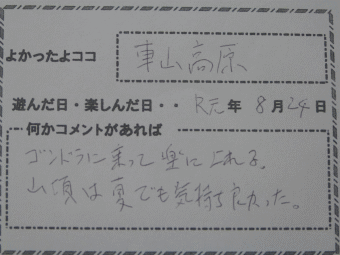 よかったよココ 車山高原
遊んだ日・楽しんだ日・・ R元年 8月24日
何かコメントがあれば
ゴンドラに乗って楽に上れる。
山頂は夏でも気持ち良かった。